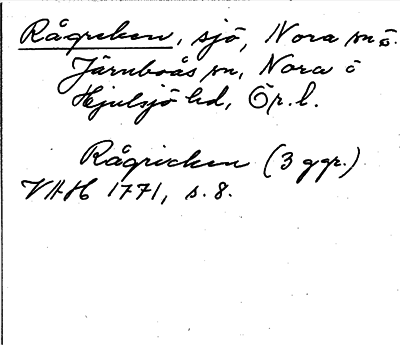 Rågreken, sjö, Nora sn ö.
Järnboås sn, Nora o
Hjulsjö hd, Ör. l.
Rågricken (3 ggr.)
VAH 1771, s. 8.